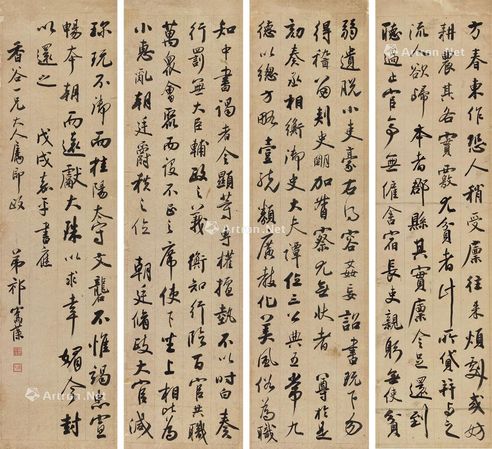 方春東作恐人稍受廩往來煩劇或妨
耕農其各實覈尤貧者計所貸并与之
流人欲歸本者郡縣其實廩令足還到
聽過止官亭無雇舍宿長吏親躬無使貧
弱遺脫小吏豪右得容姦妄詔書既下勿
得稽留刺史明加督察尤無狀者 尊於是
劾奏丞相衡御史大夫譚位三公典五常九
德以總方略壹統類廣教化美風俗為職
知中書謁者令顯等專權擅埶不以時白奏
行罰無大臣輔政之義 衡知行臨百官共職
萬眾會聚而設不正之席使下坐上相比為
小惠亂朝廷爵秩之位 朝廷脩政大官減
珍玩不御而桂陽太守文礱不惟竭忠宣
暢本朝而遠獻大珠以求幸媚今封
以還之 戊戌嘉平書應
香谷一兄大人屬即政
弟祁寯藻
Artron.Net